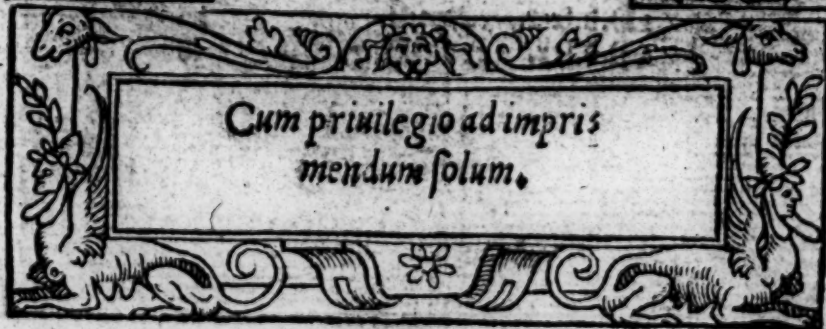 Cum priuilegio ad impris
mendum ſolum.